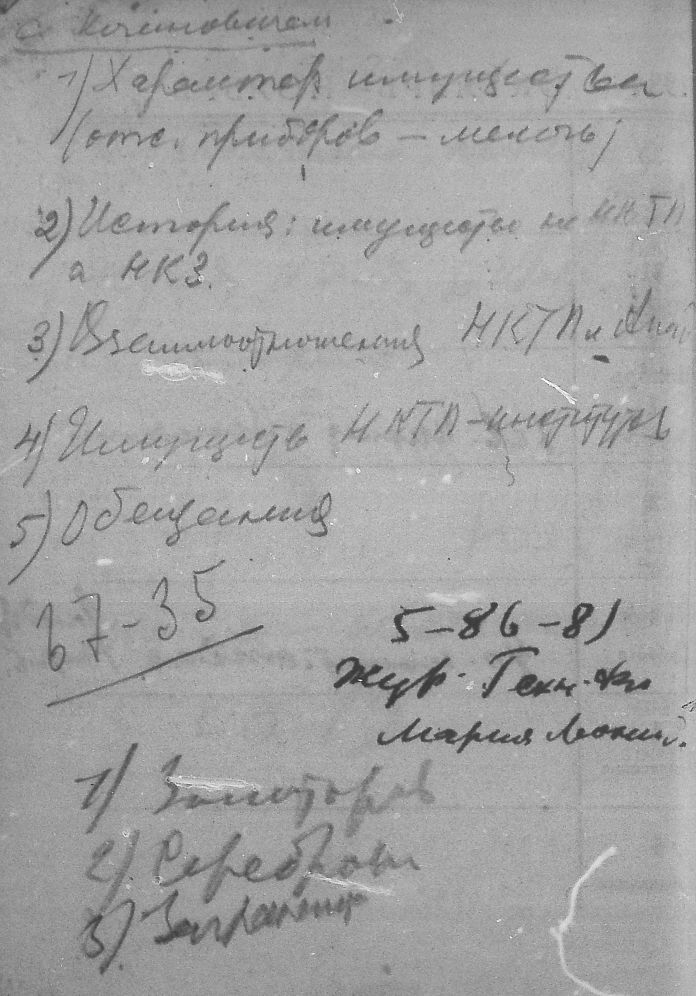 с
1) Характер имущества
(отс. приборов – мелочь)
2) История: имущество не НКТП
а НКЗ.
3) Взаимоотношения НКТП и
4) Имущество НКТП – институтов
5) Обещания
67-35
5-86-81
Жур. Техн. Физ
Мария
1) Золоторев
2) Серебров
3)